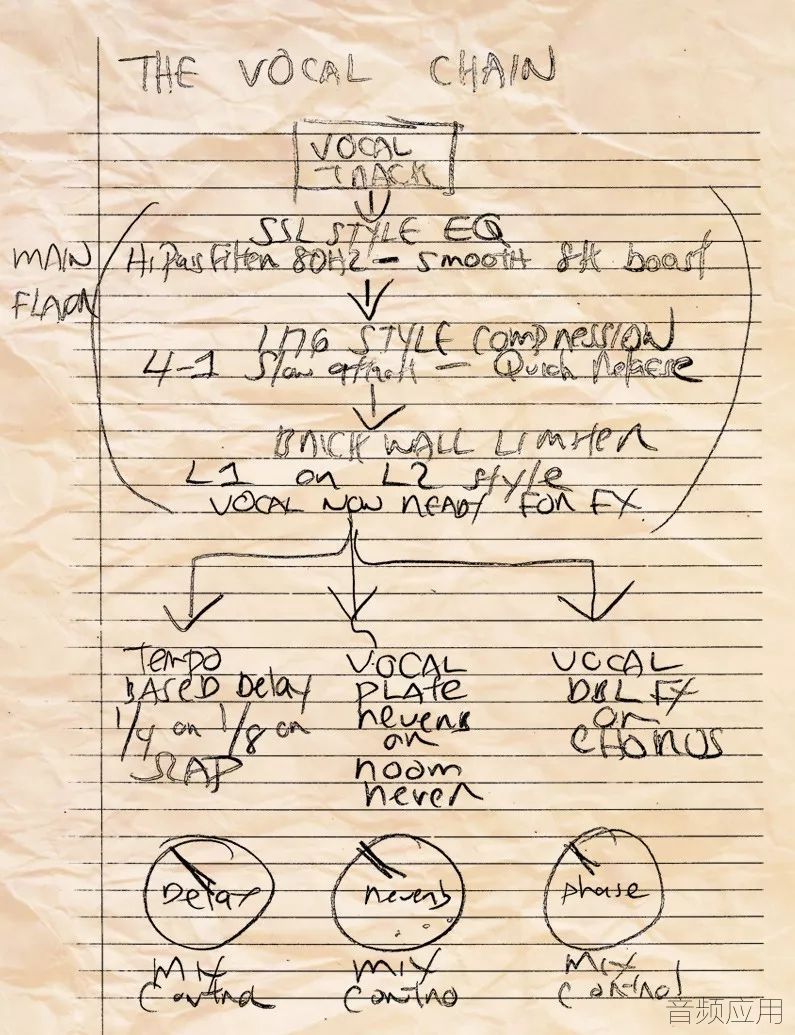 THE VOCAL CHAIN
VOCAL
TRACK
SSL STYLE EQ
MAIN
Hi Pass Filter 80HZ - Smooth 8k boost
1176 STYLE COMPRESSION
4-1 Slow attack - Quick Release
BRICK WALL LIMITER
L1 or L2 style
VOCAL NOW READY FOR FX
Tempo
BASED Delay
1/4 or 1/8 or
SLAP
VOCAL
PLATE
reverb
or
room
rever
VOCAL
DBL FX
or
CHORUS
Delay
reverb
phase
MIX
Control
MIX
Contro
MIX
Control
音频应用